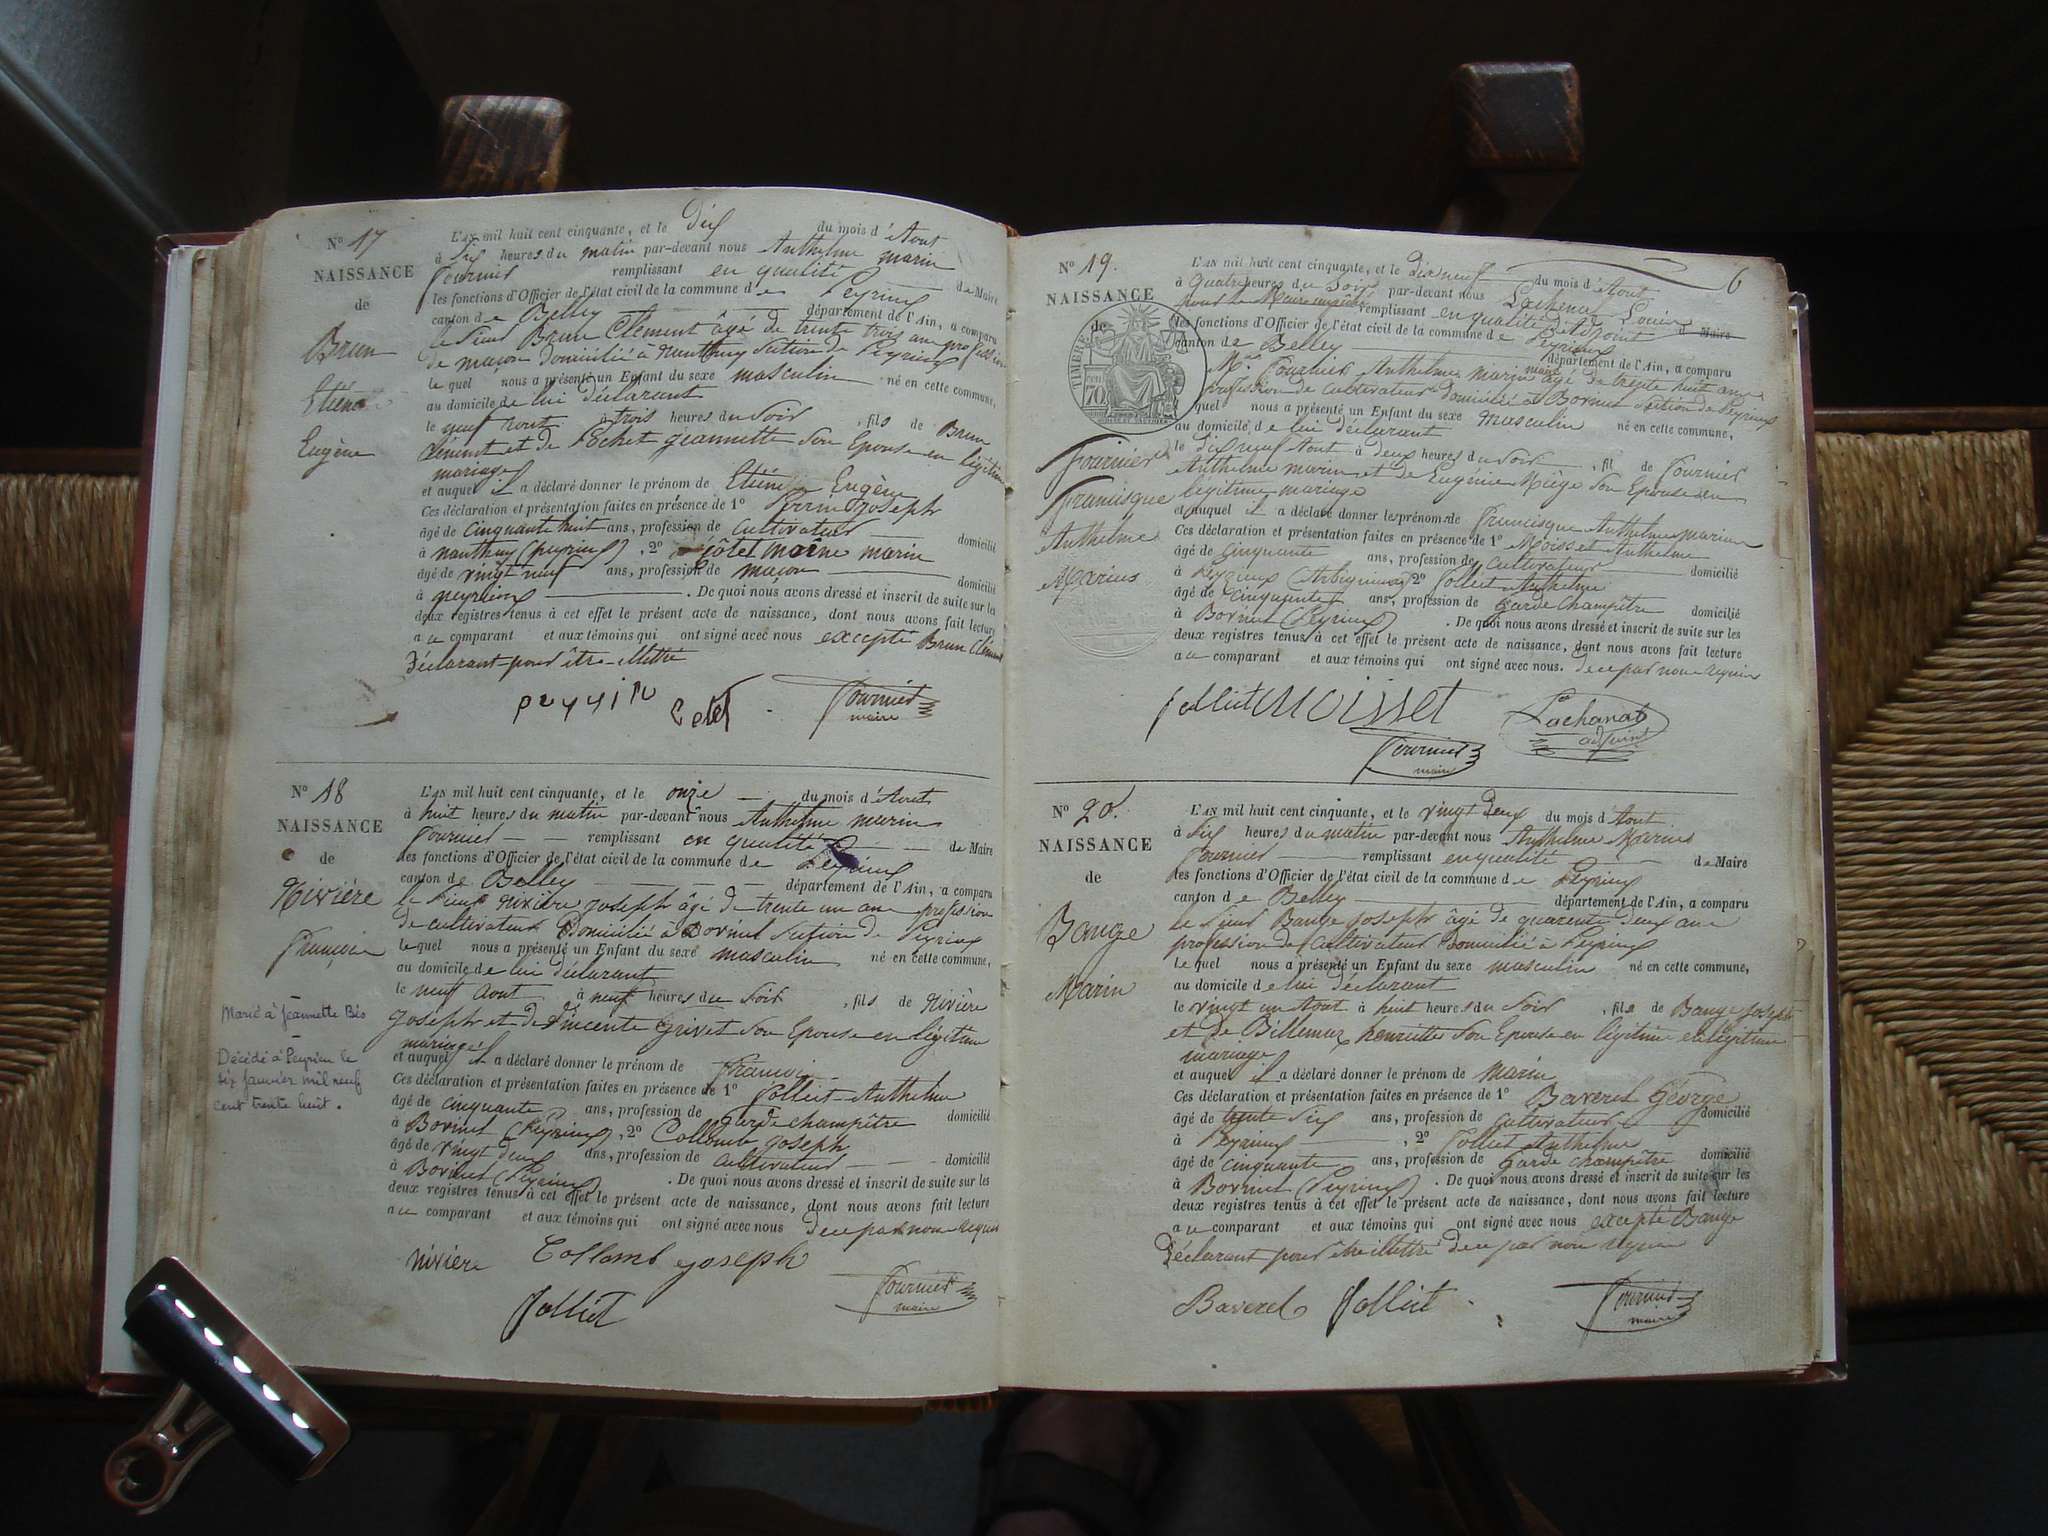 N° 17
NAISSANCE
de
Brun
Etiène
Eugène
L'AN mil huit cent cinquante, et le Dix du mois d'Aout
à Six heures du matin par-devant nous Anthelme marin
Fournier remplissant en qualité de Maire
les fonctions d'Officier de l'état civil de la commune de Peyrieux
canton de Belley département de l'Ain, a comparu
le Sieur Brun Clément âgé de trente trois ans profession
de maçon domicilié à Nanthuy Section de Peyrieux
le quel nous a présenté un Enfant du sexe masculin né en cette commune,
au domicile de lui déclarant
le neuf Aout à trois heures du Soir, fils de Brun
Clément et de Pochet Jeannette Son Epouse en légitime
mariage
et auquel il a déclaré donner le prénom de Etiène Eugène
Ces déclaration et présentation faites en présence de 1° Joseph
âgé de cinquante huit ans, profession de cultivateur domicilié
à nanthuy (peyrieux), 2° marin
âgé de vingt neuf ans, profession de maçon domicilié
à peyrieux. De quoi nous avons dressé et inscrit de suite sur les
deux registres tenus à cet effet le présent acte de naissance, dont nous avons fait lecture
a u comparant et aux témoins qui ont signé avec nous excepté Brun Clément
déclarant pour être illettré
Fournier
maire
N° 18
NAISSANCE
de
Rivière
François
Marié à Jeannette Bès
Décédé à Peyrieu le
six janvier mil neuf
cent trente huit.
L'AN mil huit cent cinquante, et le onze du mois d'Aout
à huit heures du matin par-devant nous Anthelme marin
Fournier remplissant en qualité de Maire
les fonctions d'Officier de l'état civil de la commune de Peyrieux
canton de Belley département de l'Ain, a comparu
le Sieur Rivière Joseph âgé de trente un ans profession
de cultivateur Domicilié à Bovinet Section de Peyrieux
le quel nous a présenté un Enfant du sexe masculin né en cette commune,
au domicile de lui déclarant
le neuf Aout à neuf heures du Soir, fils de Rivière
Joseph et de Vincente Grivet Son Epouse en légitime
mariage
et auquel il a déclaré donner le prénom de François
Ces déclaration et présentation faites en présence de 1° Jolliet Anthelme
âgé de cinquante ans, profession de Garde champêtre domicilié
à Bovinet (Peyrieux), 2° Collomb Joseph
âgé de vingt deux ans, profession de cultivateur domicilié
à Bovinet (Peyrieux). De quoi nous avons dressé et inscrit de suite sur les
deux registres tenus à cet effet le présent acte de naissance, dont nous avons fait lecture
a u comparant et aux témoins qui ont signé avec nous de ce par nous requis
rivière Collomb Joseph
Jolliet
Fournier
maire
6
N° 19.
NAISSANCE
de
TIMBRE
70
Fournier
Francisque
Anthelme
Marius
L'AN mil huit cent cinquante, et le Dix neuf du mois d'Aout
à Quatre heures du Soir par-devant nous Lachenal Louis
pour le Maire empêché remplissant en qualité d'Adjoint de Maire
les fonctions d'Officier de l'état civil de la commune de Peyrieux
canton de Belley département de l'Ain, a comparu
Mr. Fournier Anthelme marin maire âgé de trente huit ans
profession de cultivateur domicilié à Bovinet Section de Peyrieux
quel nous a présenté un Enfant du sexe masculin né en cette commune,
au domicile de lui déclarant
le dix neuf Aout à deux heures du Soir, fil de Fournier
Anthelme marin et de Eugénie Miège Son Epouse en
légitime mariage
et auquel il a déclaré donner les prénoms de Francisque Anthelme marin
Ces déclaration et présentation faites en présence de 1° Moisset Anthelme
âgé de cinquante ans, profession de cultivateur domicilié
à Peyrieux, 2° Jolliet Anthelme
âgé de cinquante ans, profession de Garde Champêtre domicilié
à Bovinet (Peyrieux). De quoi nous avons dressé et inscrit de suite sur les
deux registres tenus à cet effet le présent acte de naissance, dont nous avons fait lecture
a u comparant et aux témoins qui ont signé avec nous. de ce par nous requis
Jolliet Moisset Lachanal
adjoint
Fournier
maire
N° 20.
NAISSANCE
de
Bange
Marin
L'AN mil huit cent cinquante, et le vingt Deux du mois d'Aout
à Six heures du matin par-devant nous Anthelme Marius
Fournier remplissant en qualité de Maire
les fonctions d'Officier de l'état civil de la commune de Peyrieux
canton de Belley département de l'Ain, a comparu
le Sieur Bange Joseph âgé de quarente deux ans
profession de Cultivateur Domicilié à Peyrieux
le quel nous a présenté un Enfant du sexe masculin né en cette commune,
au domicile de lui déclarant
le vingt un Aout à huit heures du Soir, fils de Bange Joseph
et de Billemaz henriette Son Epouse en légitime en légitime
mariage
et auquel il a déclaré donner le prénom de Marin
Ces déclaration et présentation faites en présence de 1° Baverel George
âgé de trente Six ans, profession de Cultivateur domicilié
à Peyrieux, 2° Jolliet Anthelme
âgé de cinquante ans, profession de Garde champêtre domicilié
à Bovinet (Peyrieux). De quoi nous avons dressé et inscrit de suite sur les
deux registres tenus à cet effet le présent acte de naissance, dont nous avons fait lecture
a u comparant et aux témoins qui ont signé avec nous excepté Bange
Déclarant pour être illettré de ce par nous requis
Baverel Jolliet
Fournier
maire